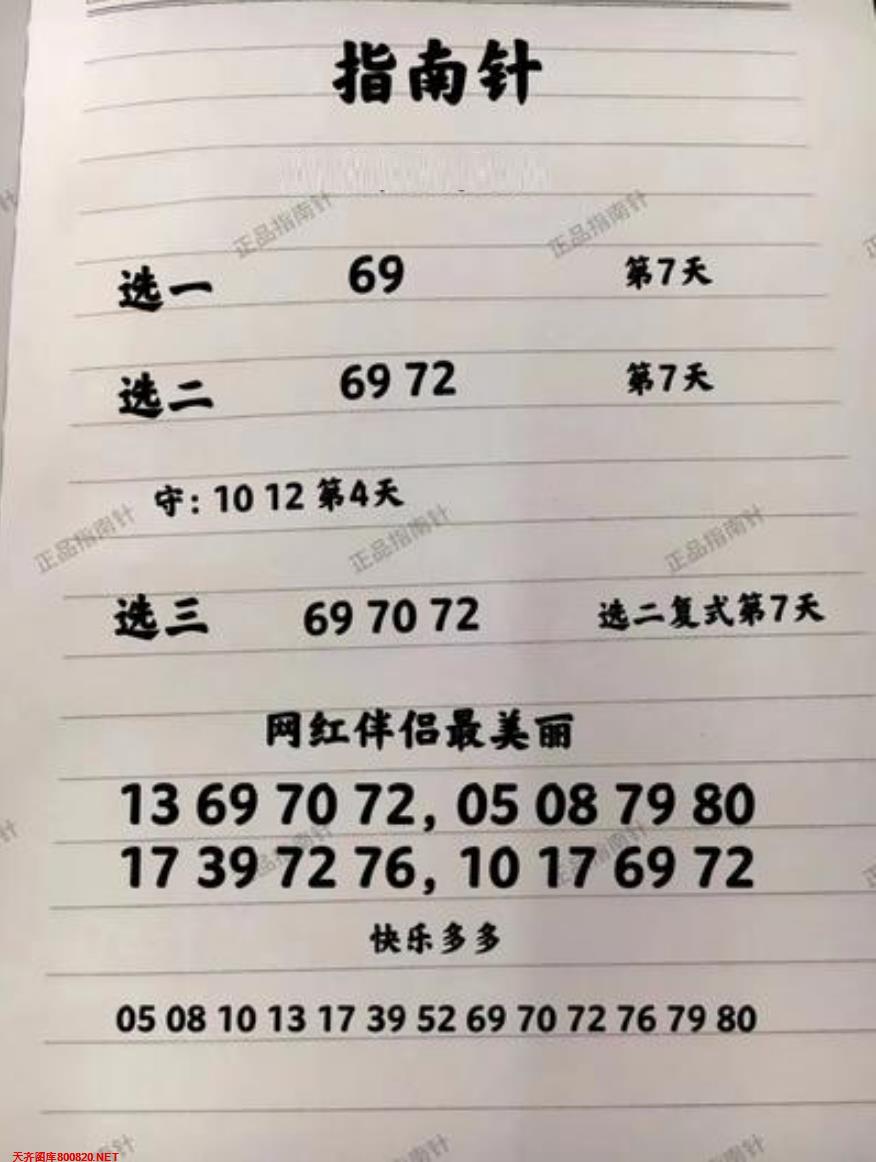 指南针
正品指南针 正品指南针
选一 69 第7天
选二 69 72 第7天
守: 10 12 第4天
正品指南针 正品指南针 正品指南针
选三 69 70 72 选二复式第7天
网红伴侣最美丽
13 69 70 72, 05 08 79 80
17 39 72 76, 10 17 69 72
快乐多多
05 08 10 13 17 39 52 69 70 72 76 79 80
天齐图库800820.NET